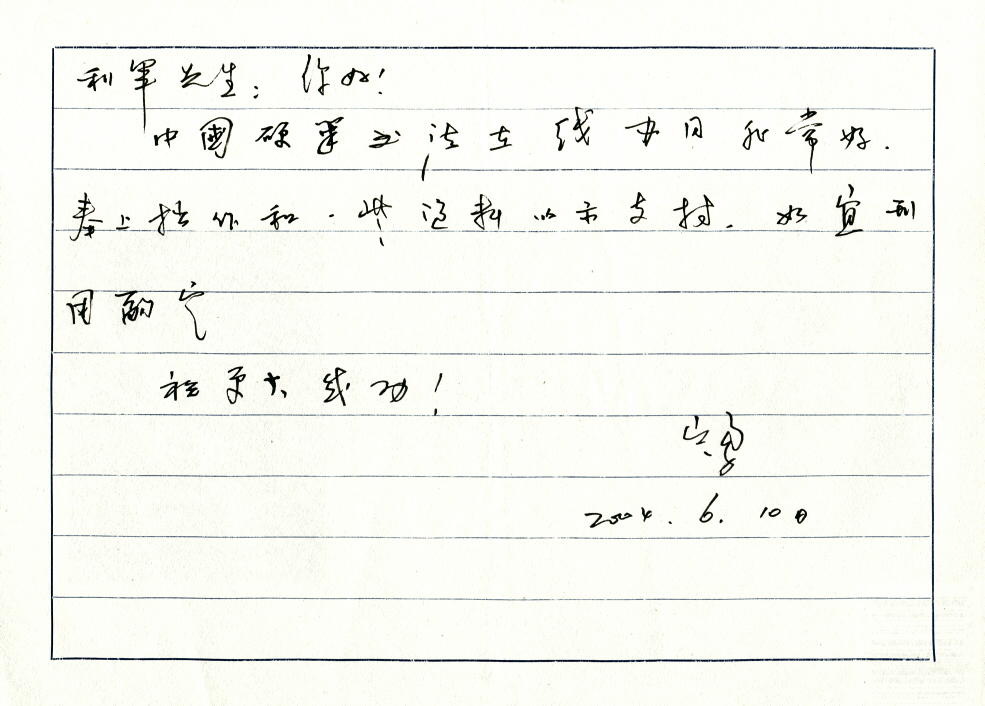 利军先生：你好！
中國硬笔书法在线办目非常好.
奉上拙作和一些资料以示支持. 如宜刊
用酌定
祝更大成功！
2004. 6. 10日